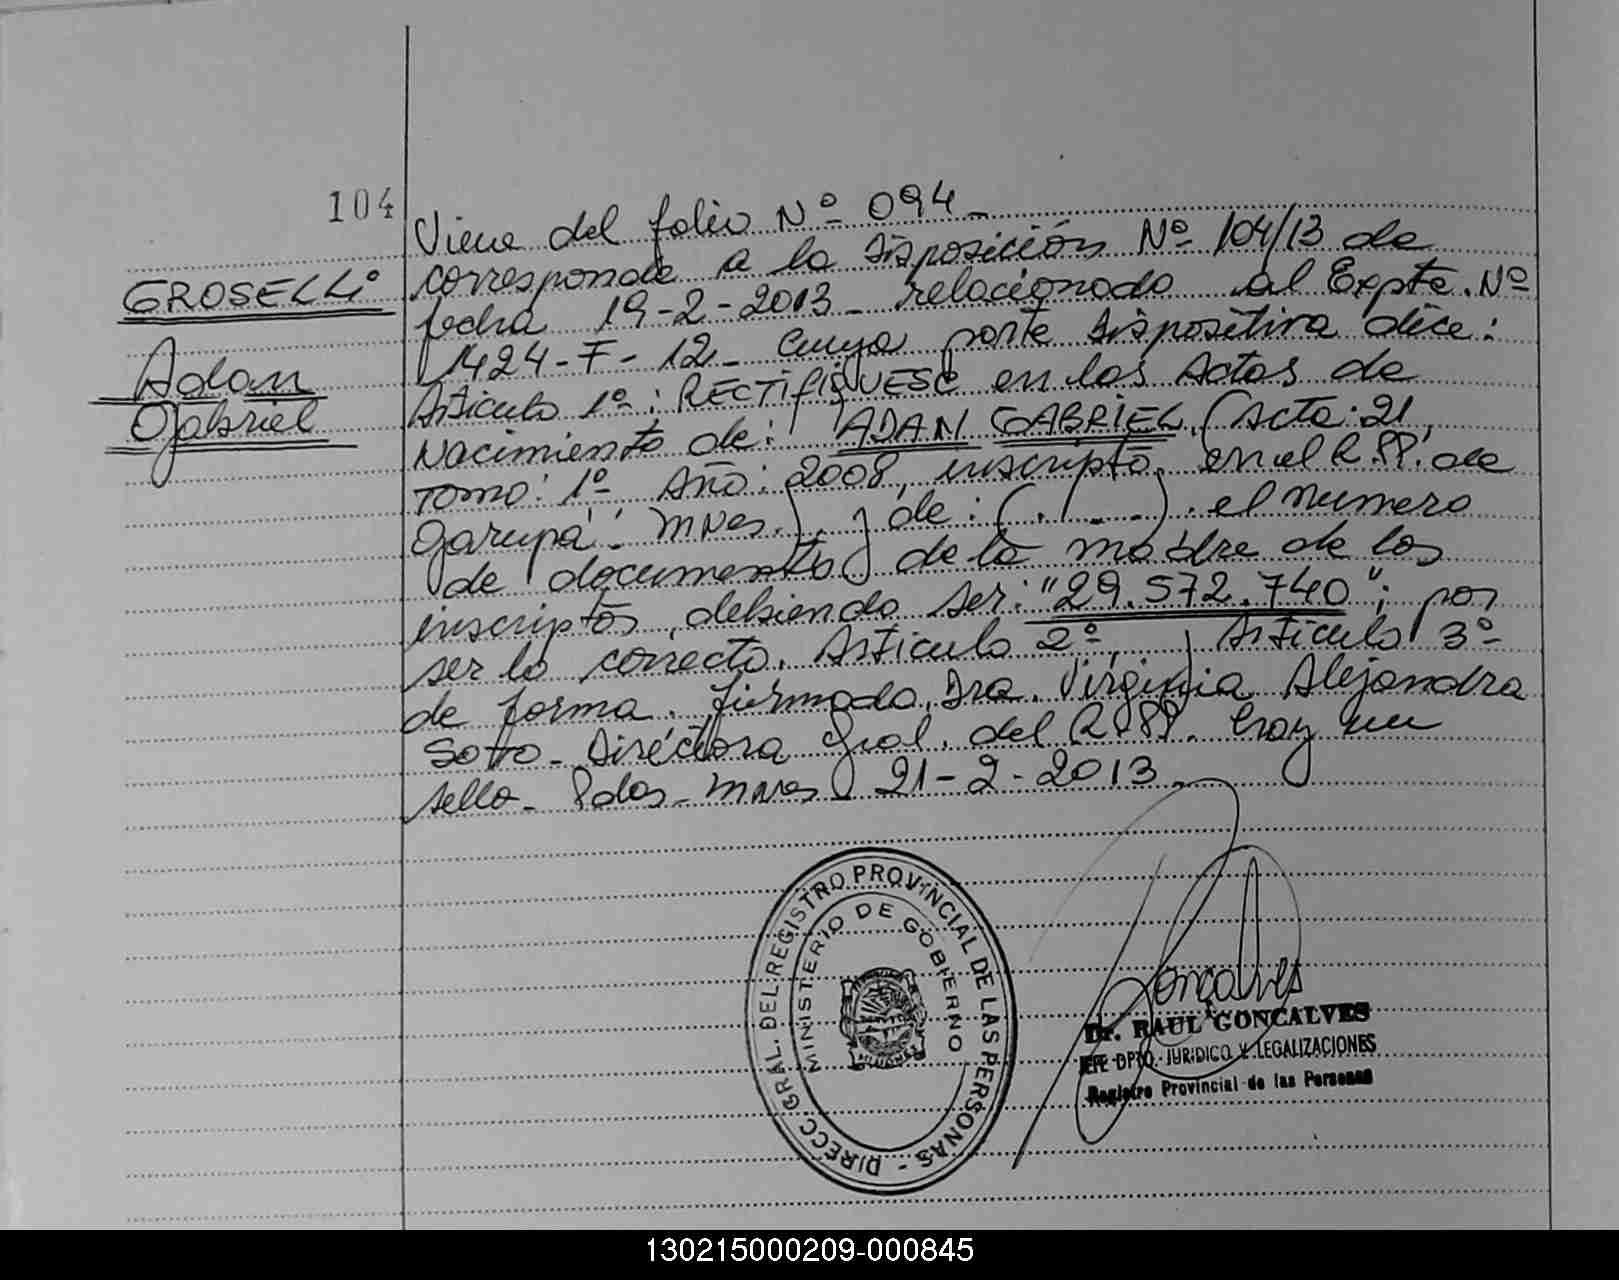 104
Viene del folio Nº 094_
GROSELLi
Adan
Gabriel
corresponde a la Disposición Nº 104/13 de
fecha 19-2-2013_ relacionada al Expte. Nº
1424-F-12_ cuya parte dispositiva dice:
Articulo 1º: RECTIFIQUESE en las Actas de
Nacimiento de: ADAN GABRIEL, (Acta: 21,
Tomo: 1º Año: 2008, inscripto, en el R.PP. de
Garupá - Mnes.) y de: (. . . . ) . el numero
de documento de la madre de los
inscriptos, debiendo ser: "29.572.740"; por
ser lo correcto. Articulo 2º, y Articulo 3º
de forma. firmado, Dra. Virginia Alejandra
Soto_ Directora Gral. del R.PP. hay un
sello_ Pdas_ Mnes 21-2-2013_
DIRECC. GRAL. DEL REGISTRO PROVINCIAL DE LAS PERSONAS -
MINISTERIO DE GOBIERNO
MISIONES
Gonçalves
Dr. RAUL GONCALVES
JEFE DPTO. JURIDICO Y LEGALIZACIONES
Registro Provincial de las Personas
130215000209-000845